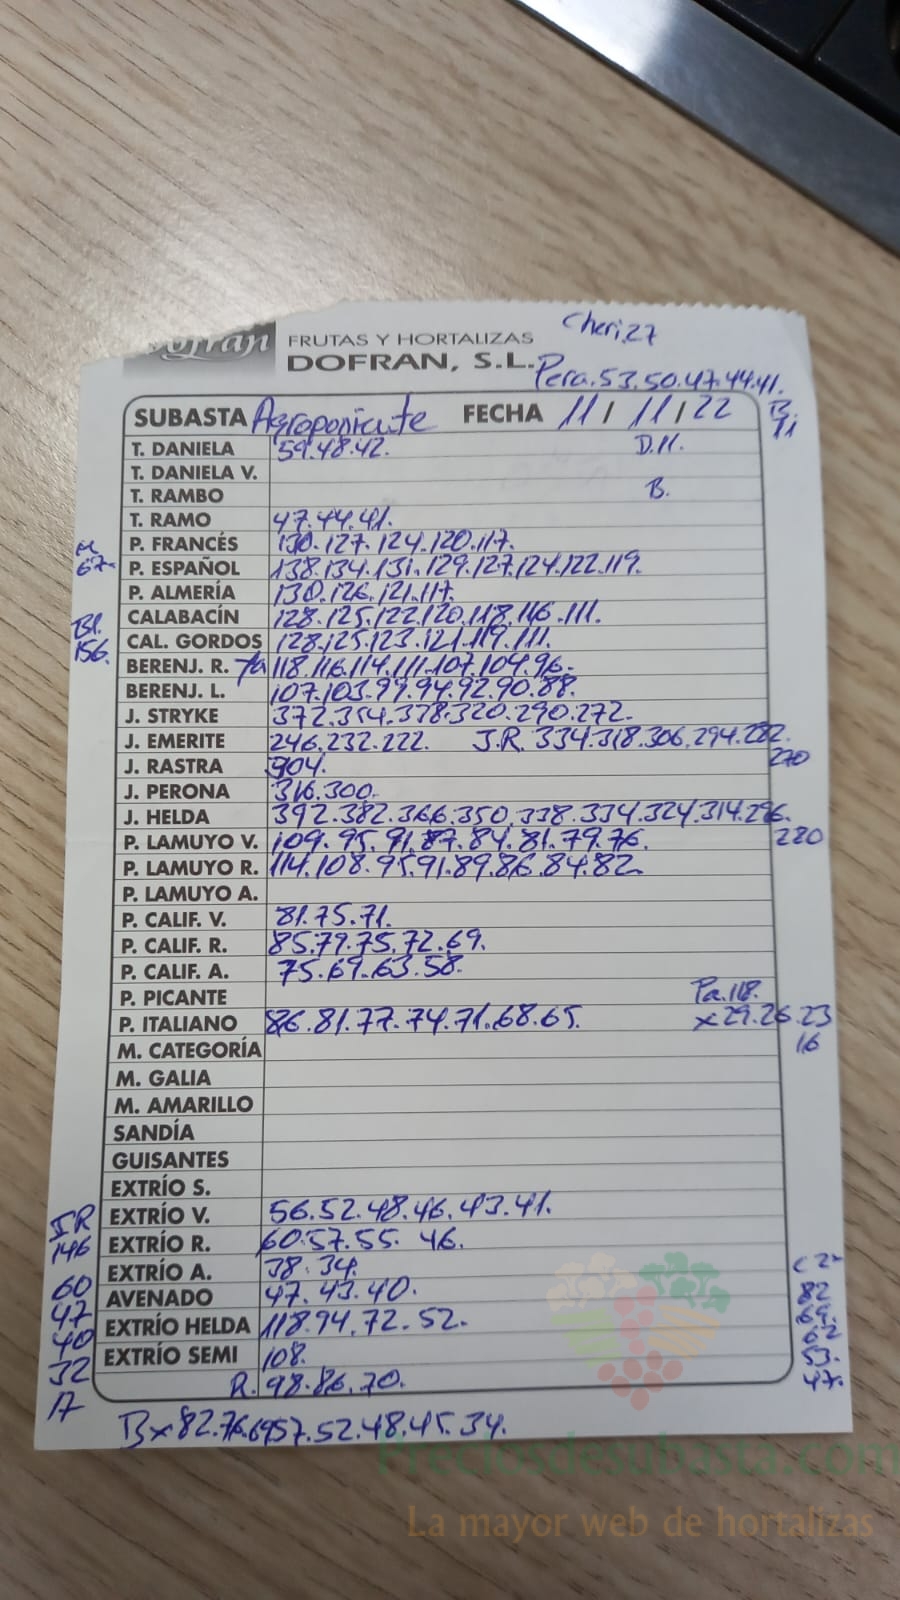 Cheri.27
Dofran FRUTAS Y HORTALIZAS
DOFRAN, S.L. Pera.53.50.47.44.41.
SUBASTA Agroponiente FECHA 11 / 11 / 22 B. 11
T. DANIELA 59.48.42. D.11.
T. DANIELA V.
T. RAMBO B.
T. RAMO 47.44.41.
P. FRANCÉS 130.127.124.120.117.
67- P. ESPAÑOL 138.134.131.129.127.124.122.119.
P. ALMERÍA 130.126.121.117.
Bl. CALABACÍN 128.125.122.120.118.116.111.
156. CAL. GORDOS 128.125.123.121.119.111.
BERENJ. R. 118.116.114.111.107.104.96-
BERENJ. L. 107.103.99.94.92.90.88.
J. STRYKE 372.354.338.320.290.272-
J. EMERITE 246.232.222. J.R. 334.318.306.294.282.
J. RASTRA 904. 270
J. PERONA 316.300-
J. HELDA 392.382.366.350.338.334.324.314.296.
P. LAMUYO V. 109.95.91.87.84.81.79.76. 280
P. LAMUYO R. 114.108.95.91.89.86.84.82.
P. LAMUYO A.
P. CALIF. V. 81.75.71.
P. CALIF. R. 85.79.75.72.69.
P. CALIF. A. 75.69.63.58.
P. PICANTE Pa.118.
P. ITALIANO 86.81.77.74.71.68.65. x29.26.23
M. CATEGORÍA 16
M. GALIA
M. AMARILLO
SANDÍA
GUISANTES
EXTRÍO S.
EXTRÍO V. 56.52.48.46.43.41.
146 EXTRÍO R. 60.57.55. 46.
EXTRÍO A. 38.34.
60 AVENADO 47.43.40. 82
47 EXTRÍO HELDA 118.94.72.52. 69.
40 EXTRÍO SEMI 108. 62
32 R. 98.86.70. 53.
17 47.
Bx 82.76.69.57.52.48.45.34.
Preciosdesubasta.com
La mayor web de hortalizas